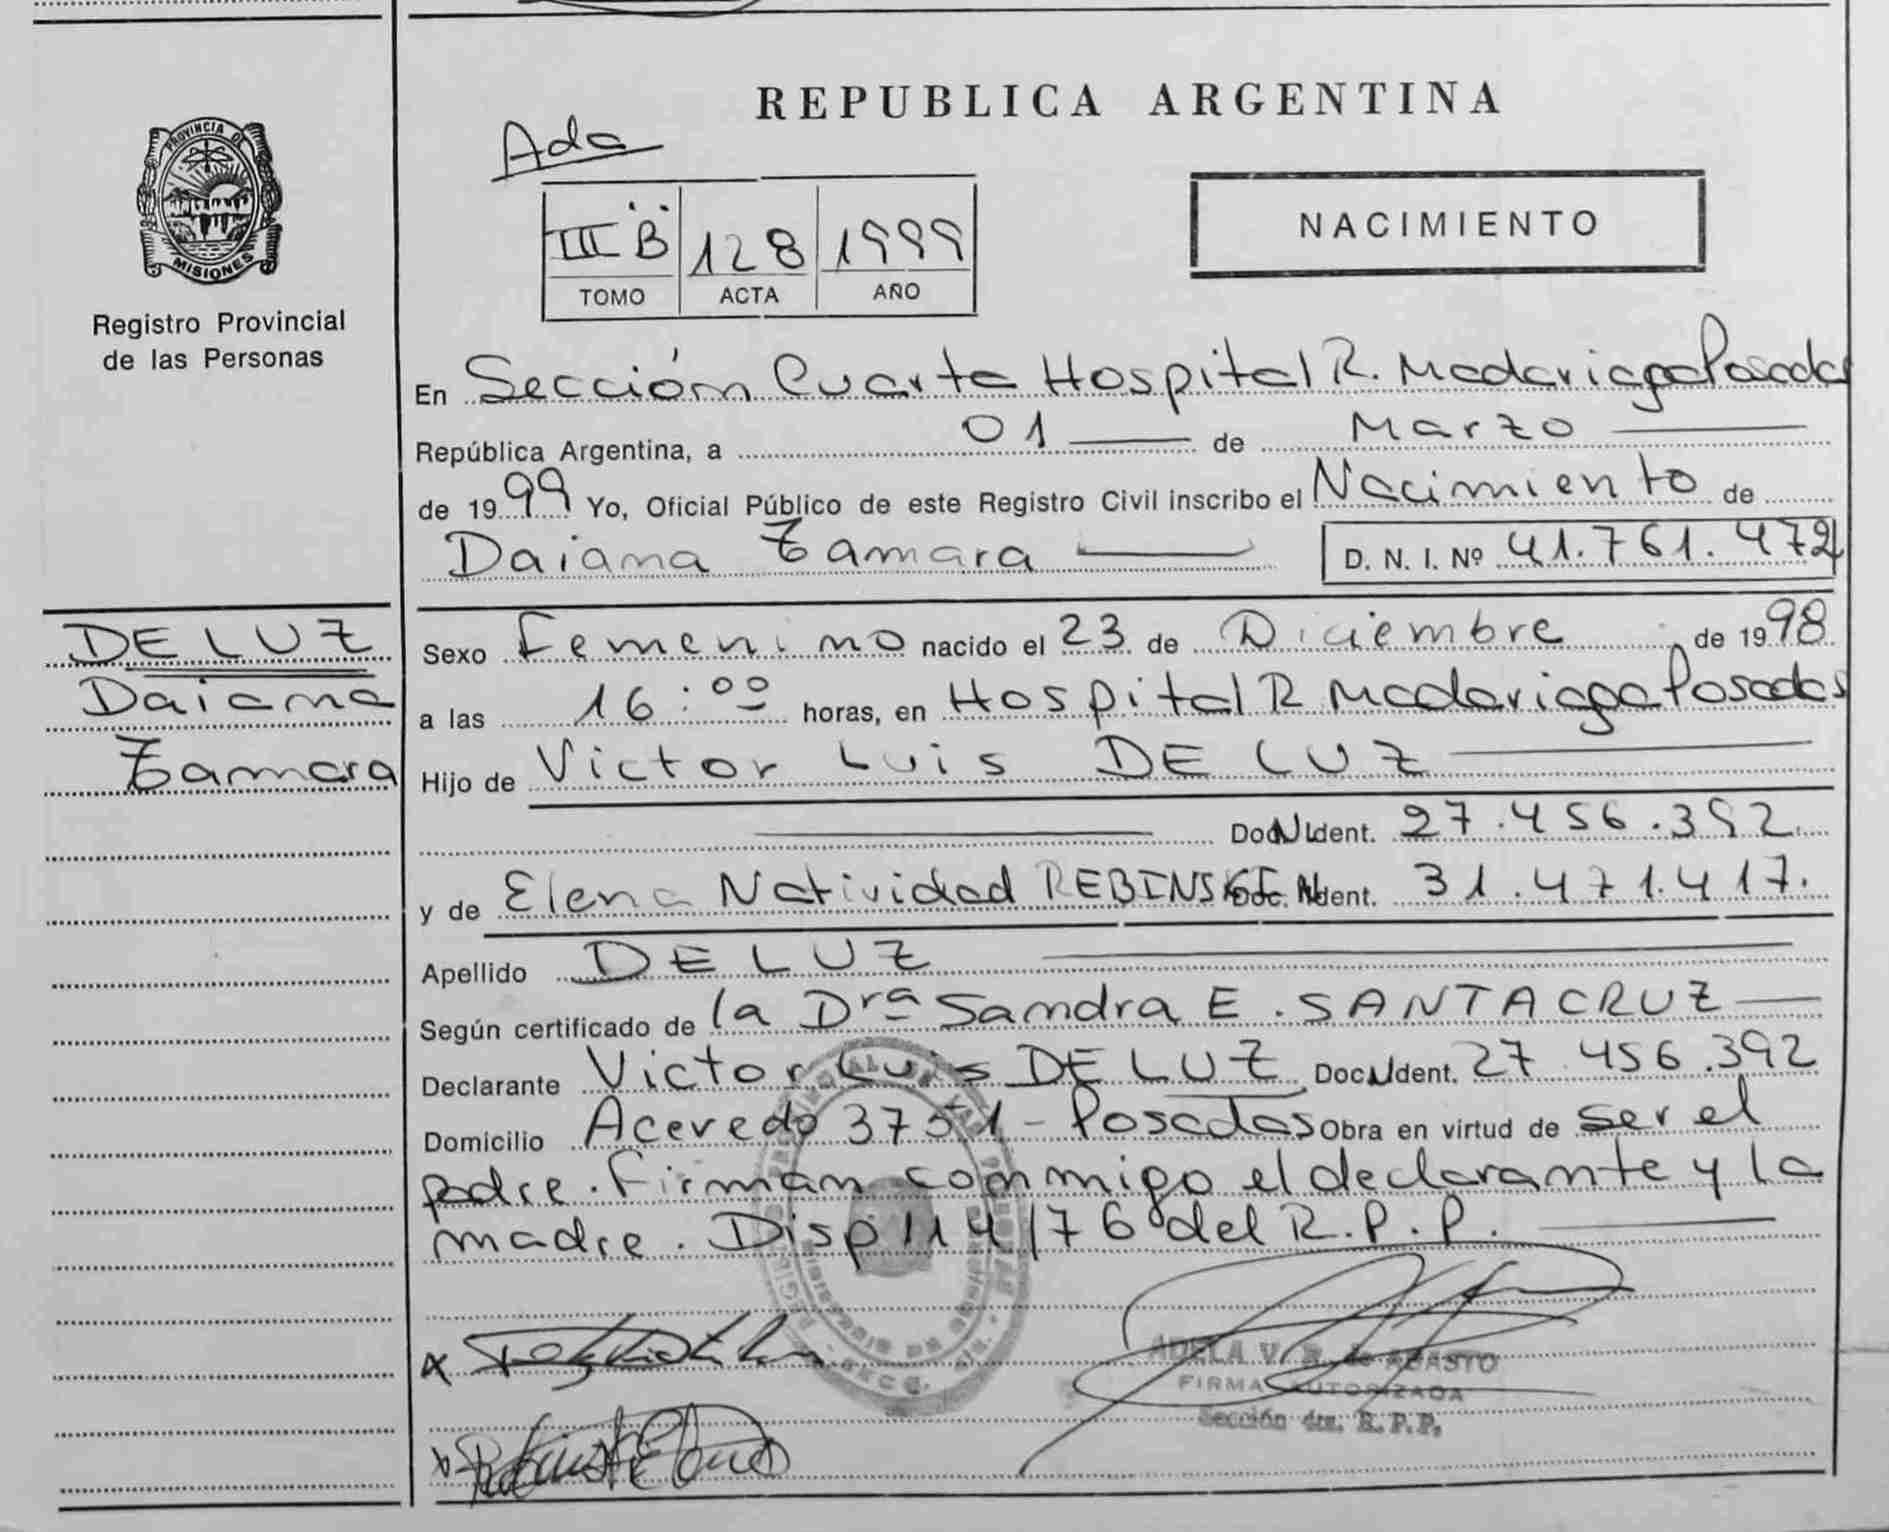 REPUBLICA ARGENTINA
PROVINCIA DE
MISIONES
Registro Provincial
de las Personas
Ada
III B 128 1999
TOMO ACTA AÑO
NACIMIENTO
En Sección Cuarta Hospital R. Madariaga Posadas
República Argentina, a 01 de Marzo
de 1999 Yo, Oficial Público de este Registro Civil inscribo el Nacimiento de
Daiana Tamara D. N. I. Nº 41.761.472
DE LUZ
Daiana
Tamara
Sexo Femenino nacido el 23 de Diciembre de 1998
a las 16:00 horas, en Hospital R Madariaga Posadas
Hijo de Victor Luis DE LUZ
Doc. Ident. 27.456.392.
y de Elena Natividad REBINSKI Doc. Ident. 31.471.417.
Apellido DE LUZ
Según certificado de la Dra Sandra E. SANTACRUZ
Declarante Victor Luis DE LUZ Doc. Ident. 27.456.392
Domicilio Acevedo 3751 - Posadas Obra en virtud de ser el
padre. Firman conmigo el declarante y la
madre. Disp 114/76 del R.P.P.
ADELA V. R. de ABASTO
FIRMA AUTORIZADA
Sección 4ta. R.P.P.